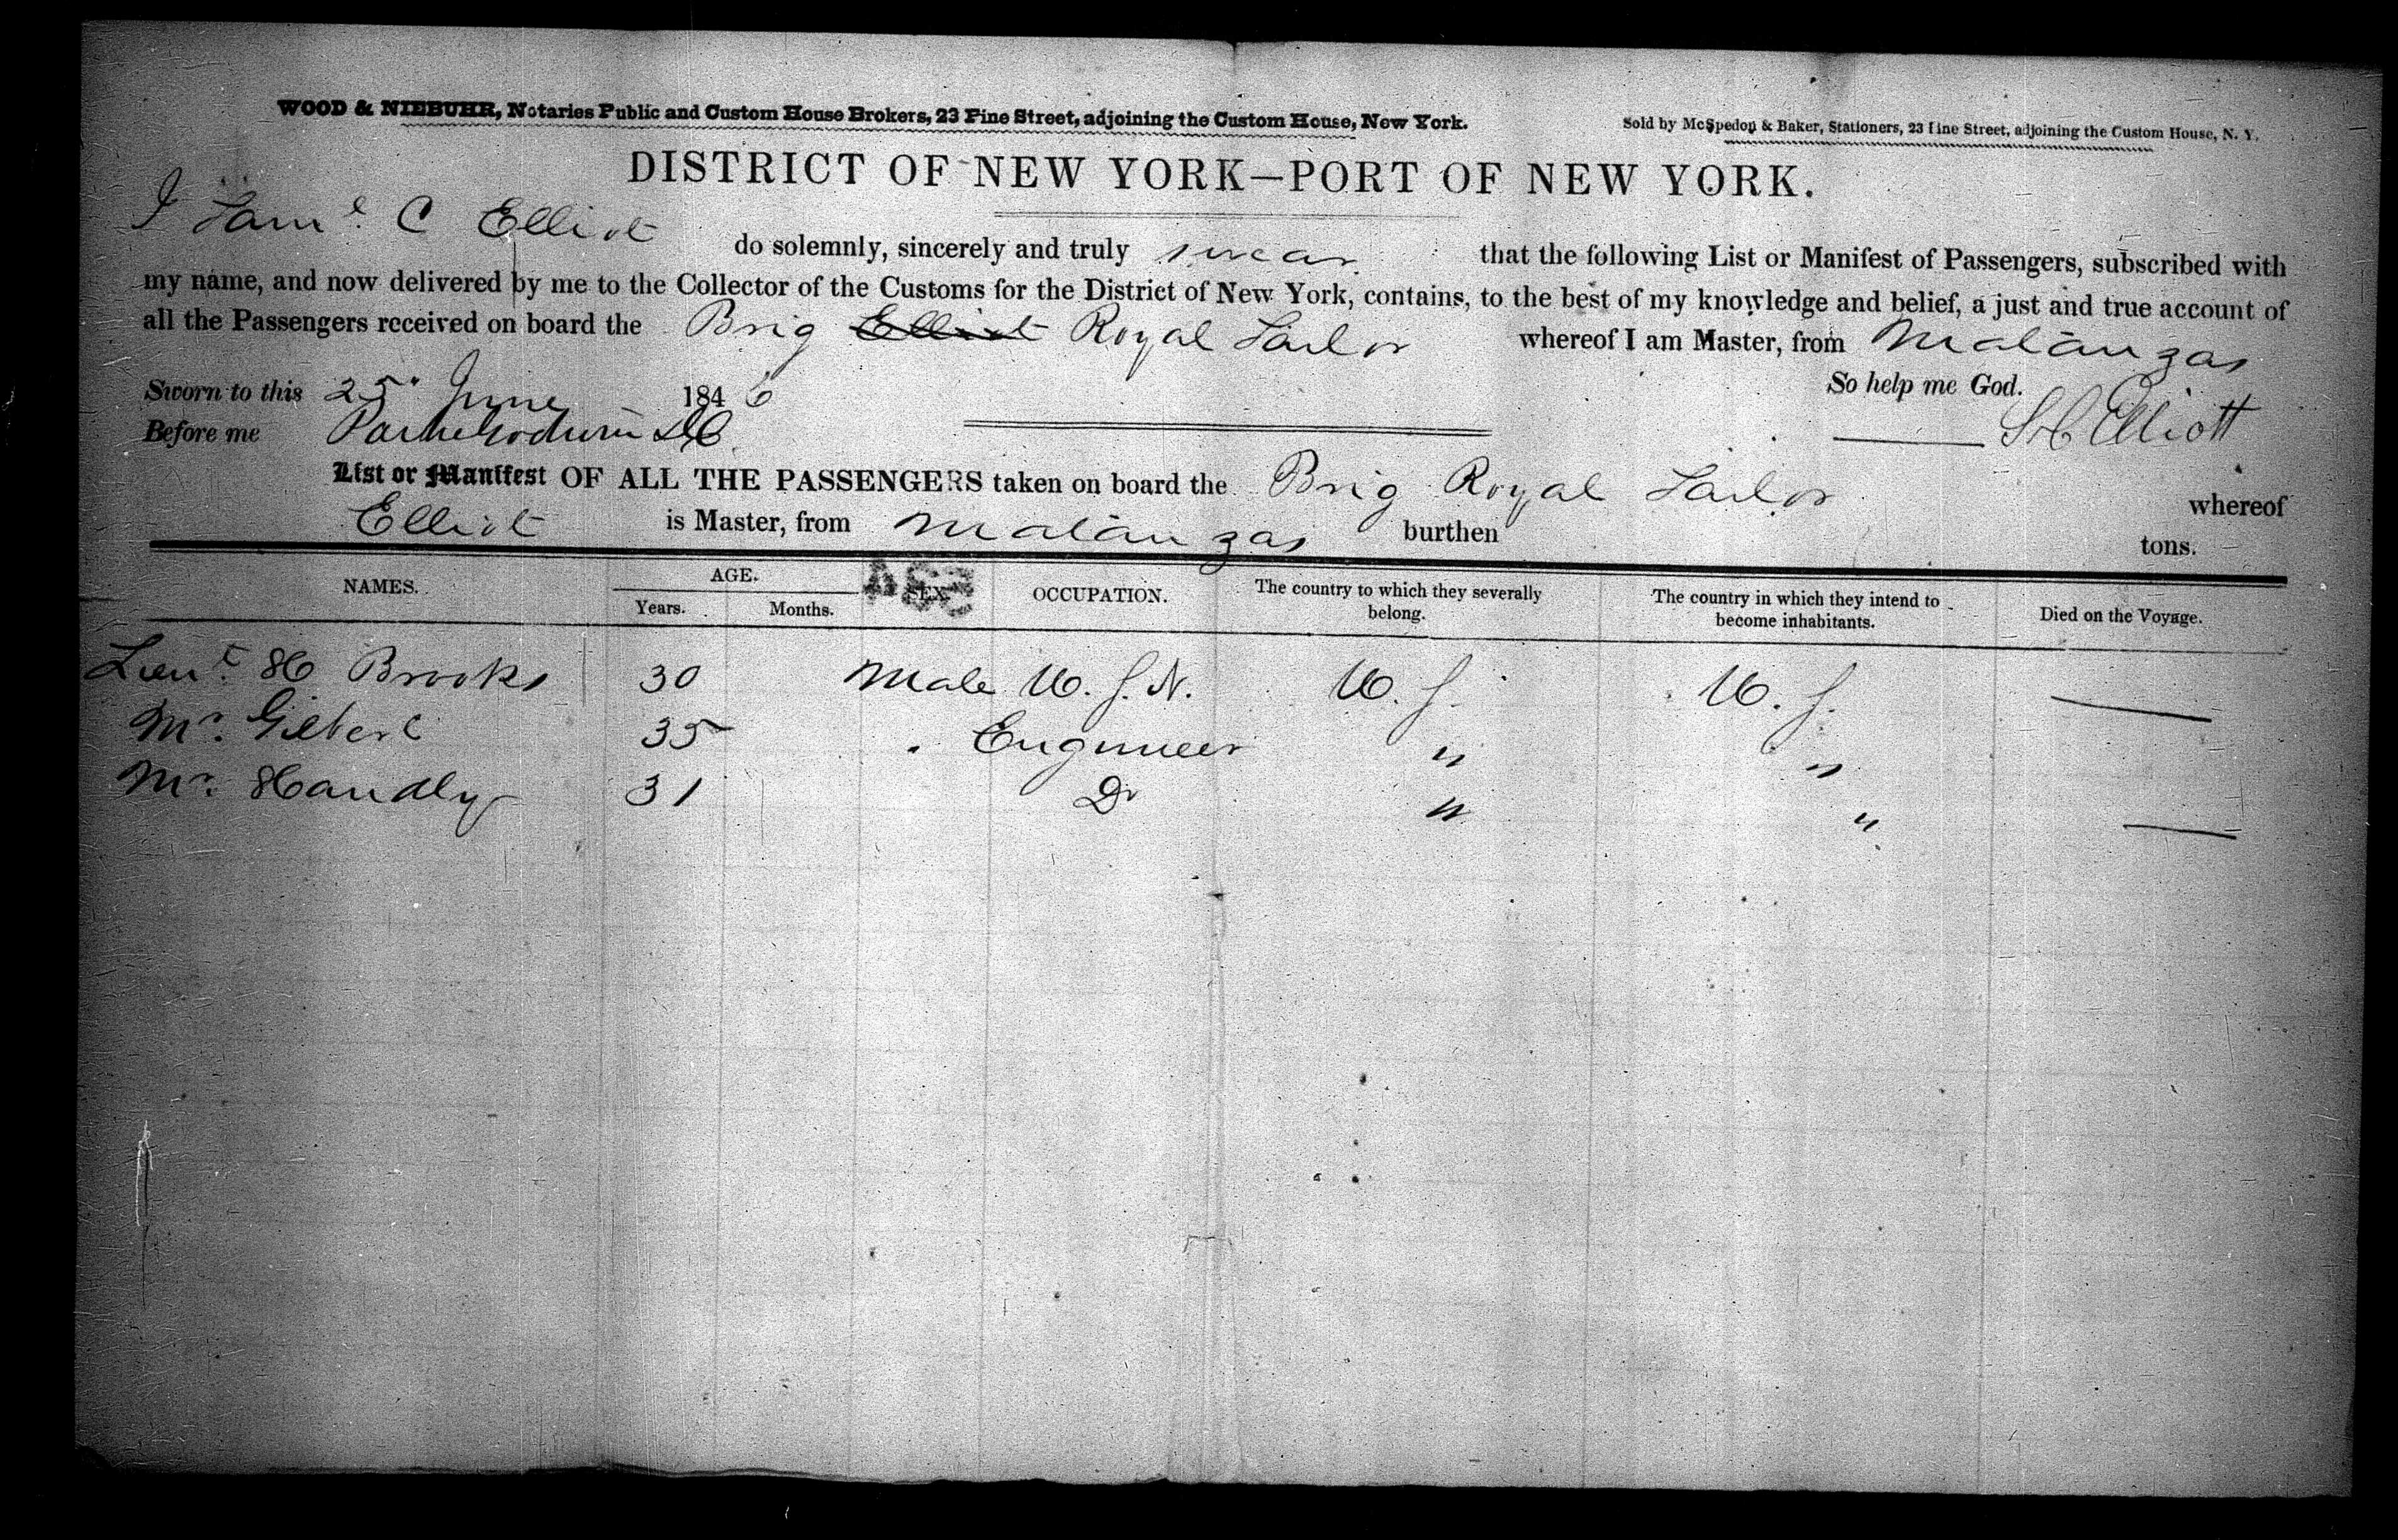 WOOD & NIEBUHR, Notaries Public and Custom House Brokers, 23 Pine Street, adjoining the Custom House, New York.
Sold by McSpedon & Baker, Stationers, 23 Pine Street, adjoining the Custom House, N. Y.
DISTRICT OF NEW YORK—PORT OF NEW YORK.
I Saml. C Elliot do solemnly, sincerely and truly swear that the following List or Manifest of Passengers, subscribed with
my name, and now delivered by me to the Collector of the Customs for the District of New York, contains, to the best of my knowledge and belief, a just and true account of
all the Passengers received on board the Brig Elliot Royal Sailor whereof I am Master, from Matanzas
Sworn to this 25 June 1846 So help me God.
Before me S C Elliott
List or Manifest OF ALL THE PASSENGERS taken on board the Brig Royal Sailor whereof
Elliot is Master, from Matanzas burthen tons.
NAMES. AGE. SEX. OCCUPATION. The country to which they severally belong. The country in which they intend to become inhabitants. Died on the Voyage.
Years. Months.
Lieut. H Brooks 30 Male U. S. N. U. S. U. S. —
Mr. Gilbert 35 " Engineer " "
Mr. Handly 31 Do " " —